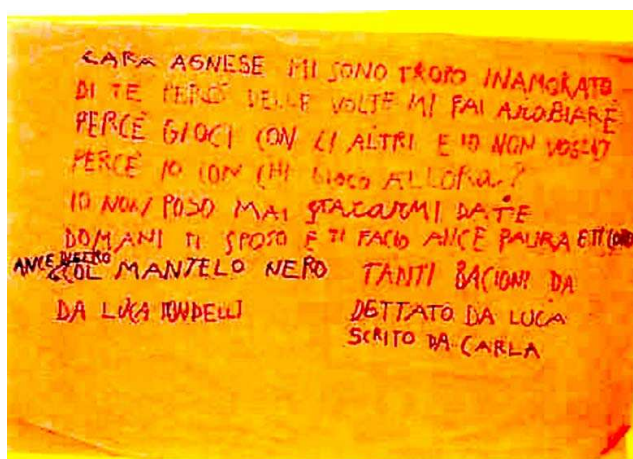 CARA AGNESE MI SONO TROPO INAMORATO
DI TE PERCE DELLE VOLTE MI FAI ARABIARE
PERCE GIOCI CON LI ALTRI E IO NON VOGLIO
PERCE IO CON CHI GIOCO ALLORA?
IO NON POSO MAI STACARMI DA TE
DOMANI TI SPOSO E TI FACIO ANCE PAURA E TI
ANCE DIETRO
COL MANTELO NERO TANTI BACIONI DA
DA LUCA DETTATO DA LUCA
SCRITO DA CARLA